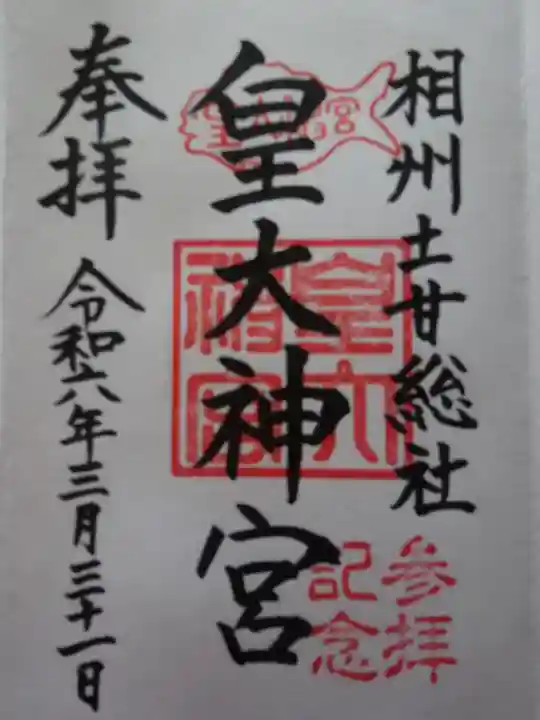 相州土甘総社
皇大神宮
奉拝
令和六年三月三十一日
皇大神宮
皇大神宮
参拝
記念